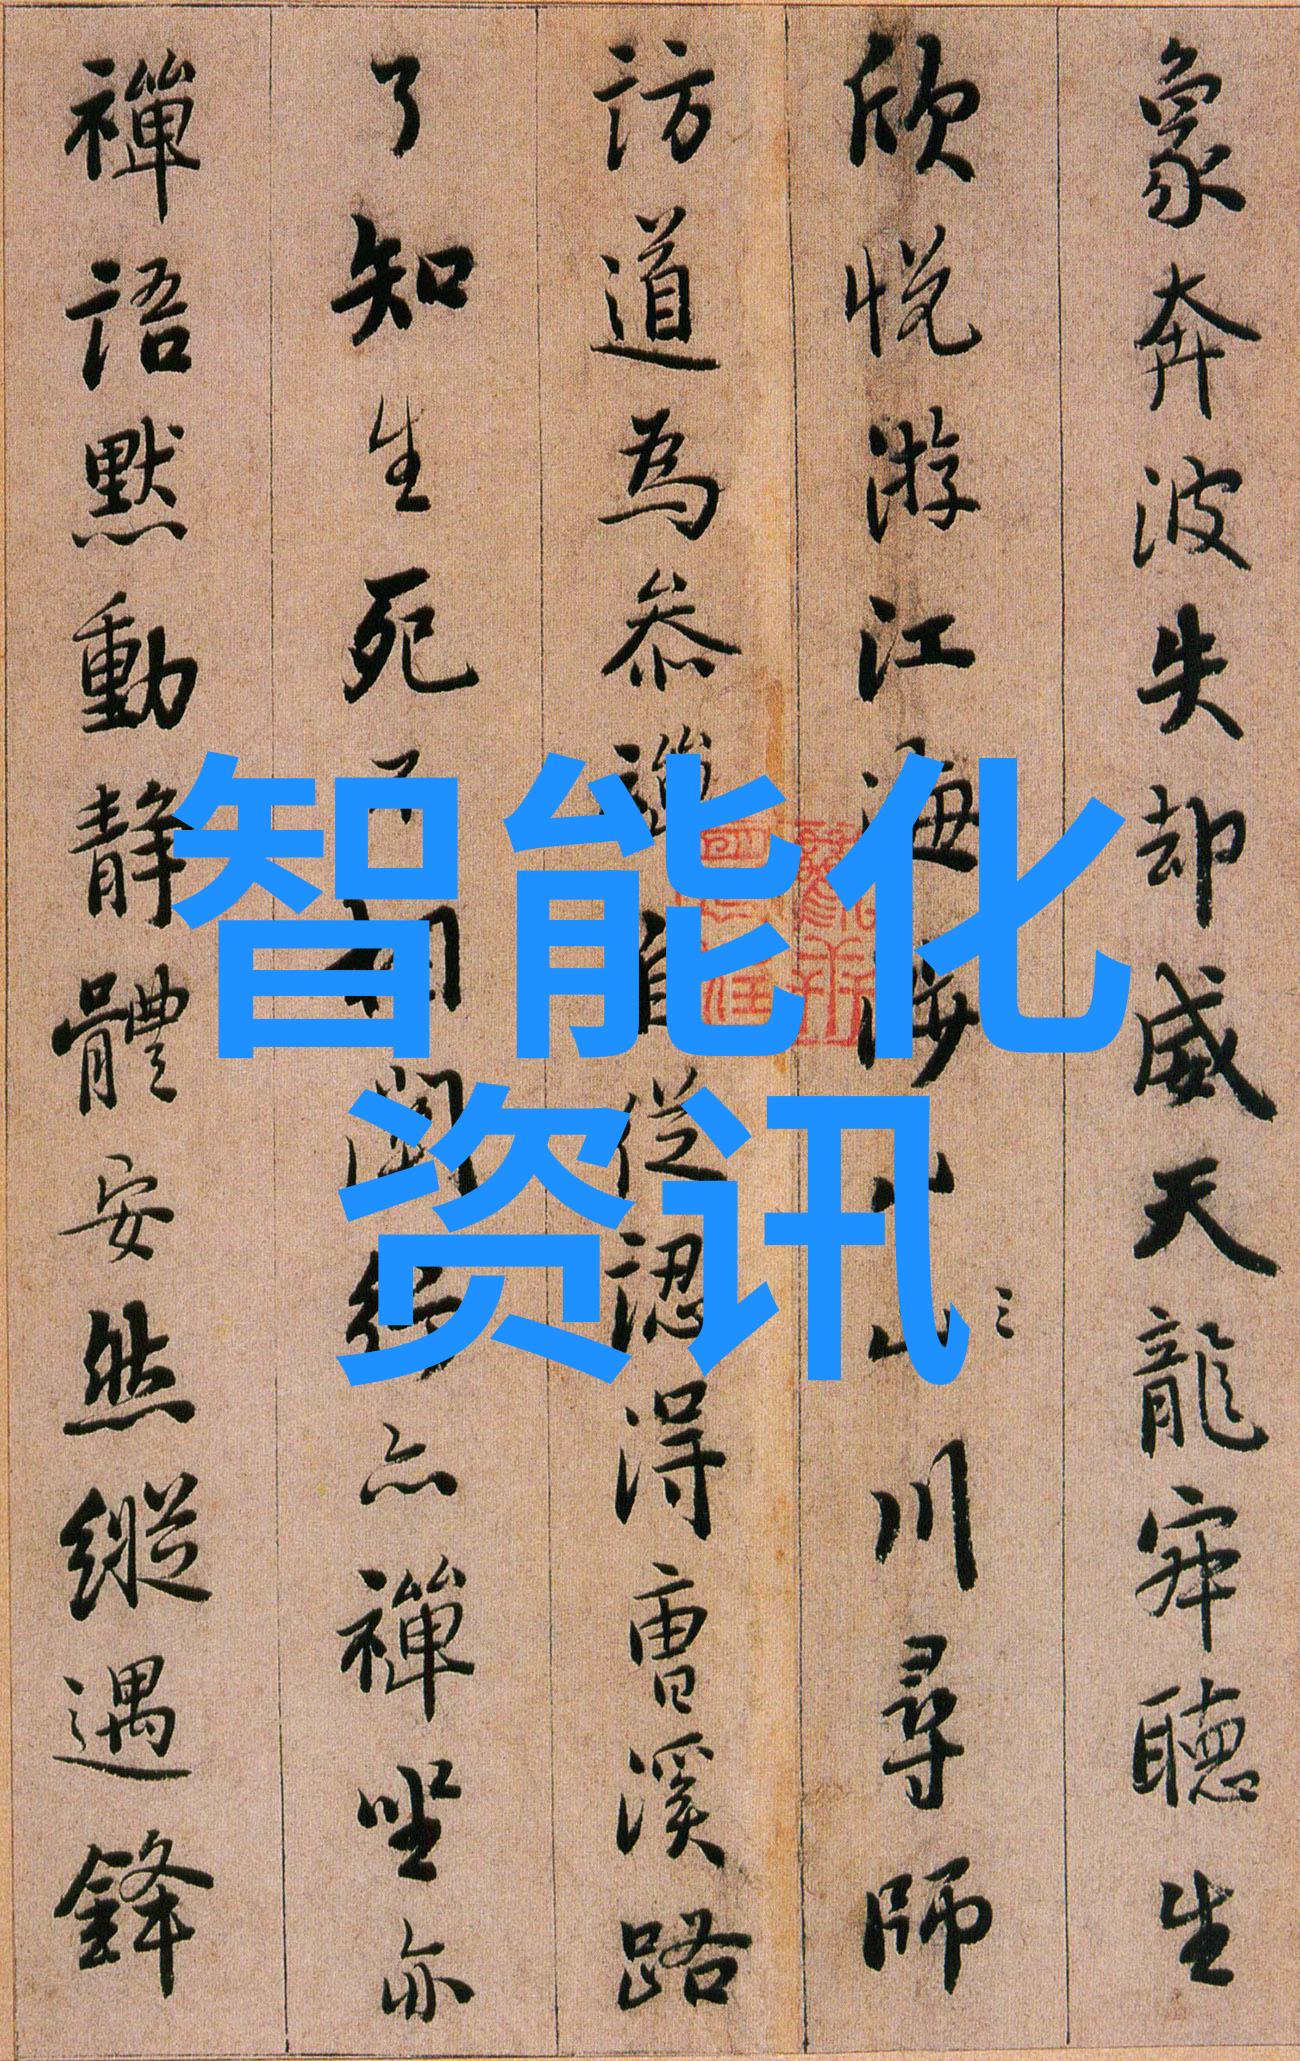 象奔波失却威天龍寂聽生
欣悅游江海山川尋師
訪道為叅禪從認得曹溪路
了知生死不相關行亦禪坐亦
禪語默動靜體安然縱遇鋒
智能化
资讯